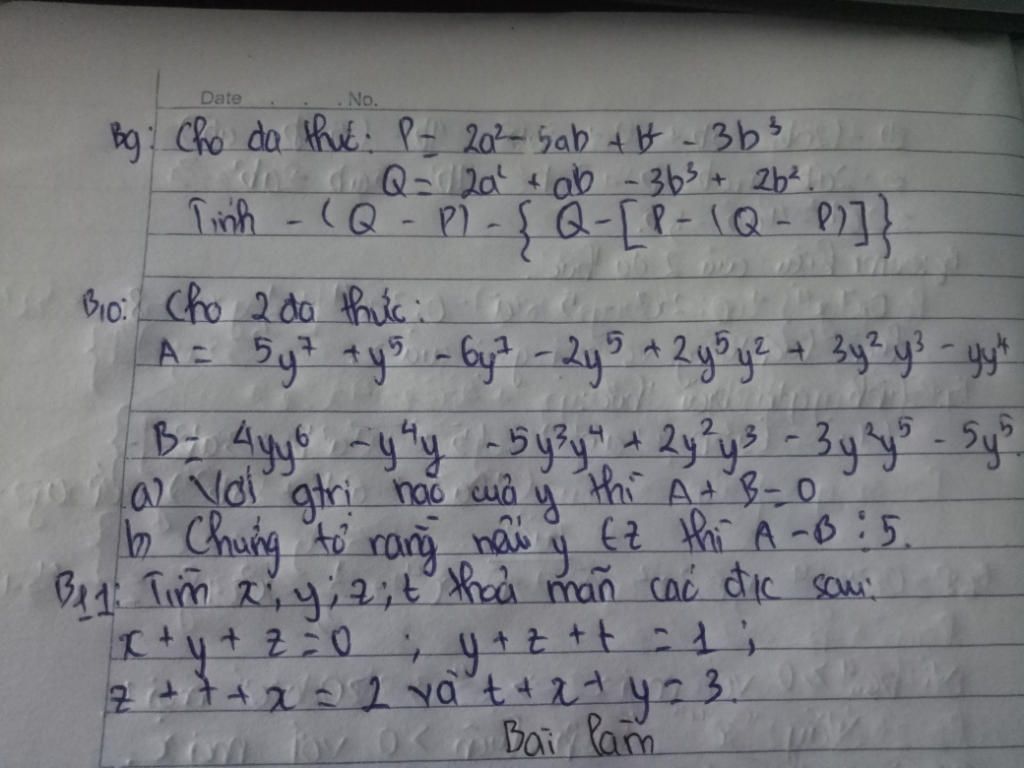 Date . . . No.
B9: Cho đa thức: P = 2a² - 5ab + b - 3b³
Q = 2a² + ab - 3b³ + 2b².
Tính - (Q - P) - { Q - [P - (Q - P)]}
B10: Cho 2 đa thức:
A = 5y⁷ + y⁵ - 6y⁷ - 2y⁵ + 2y⁵y² + 3y²y³ - yy⁴
B = 4yy⁶ - y⁴y - 5y³y⁴ + 2y²y³ - 3y²y⁵ - 5y⁵
a) Với gtrị nào của y thì A + B = 0
b) Chứng tỏ rằng nếu y ∈ Z thì A - B ⋮ 5.
B11: Tìm x; y; z; t thoả mãn các đ/k sau:
x + y + z = 0 ; y + z + t = 1 ;
z + t + x = 2 và t + x + y = 3.
Bài làm